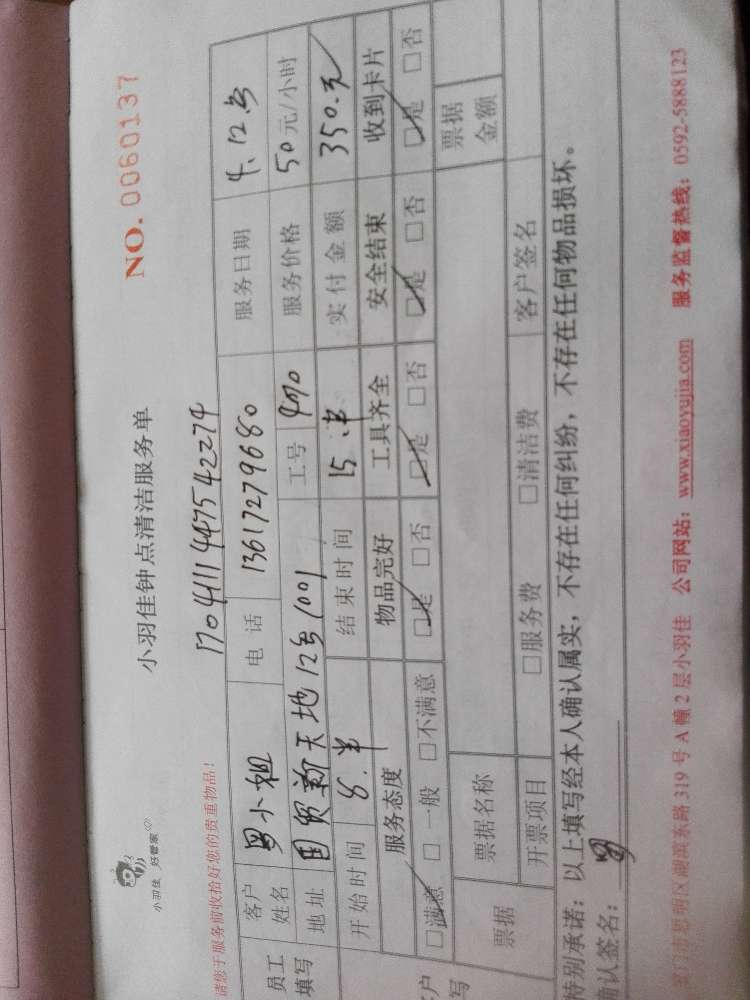 小羽佳 好管家
小羽佳钟点清洁服务单
NO. 0060137
请您于服务前收拾好您的贵重物品!
1704111447542274
员工填写
客户姓名 罗小姐 电话 13617279680 服务日期 4.12号
地址 国贸新天地12号1001 工号 服务价格 50元/小时
开始时间 8.半 结束时间 15.半 实付金额 350.元
服务态度 物品完好 工具齐全 安全结束 收到卡片
□满意 □一般 □不满意 □是 □否 □是 □否 □是 □否 □是 □否
票据 票据名称 票据金额
开票项目 □服务费 □清洁费 客户签名
特别承诺：以上填写经本人确认属实，不存在任何纠纷，不存在任何物品损坏。
确认签名： 罗
厦门市思明区湖滨东路319号A幢2层小羽佳 公司网站：www.xiaoyujia.com 服务监督热线：0592-5888123